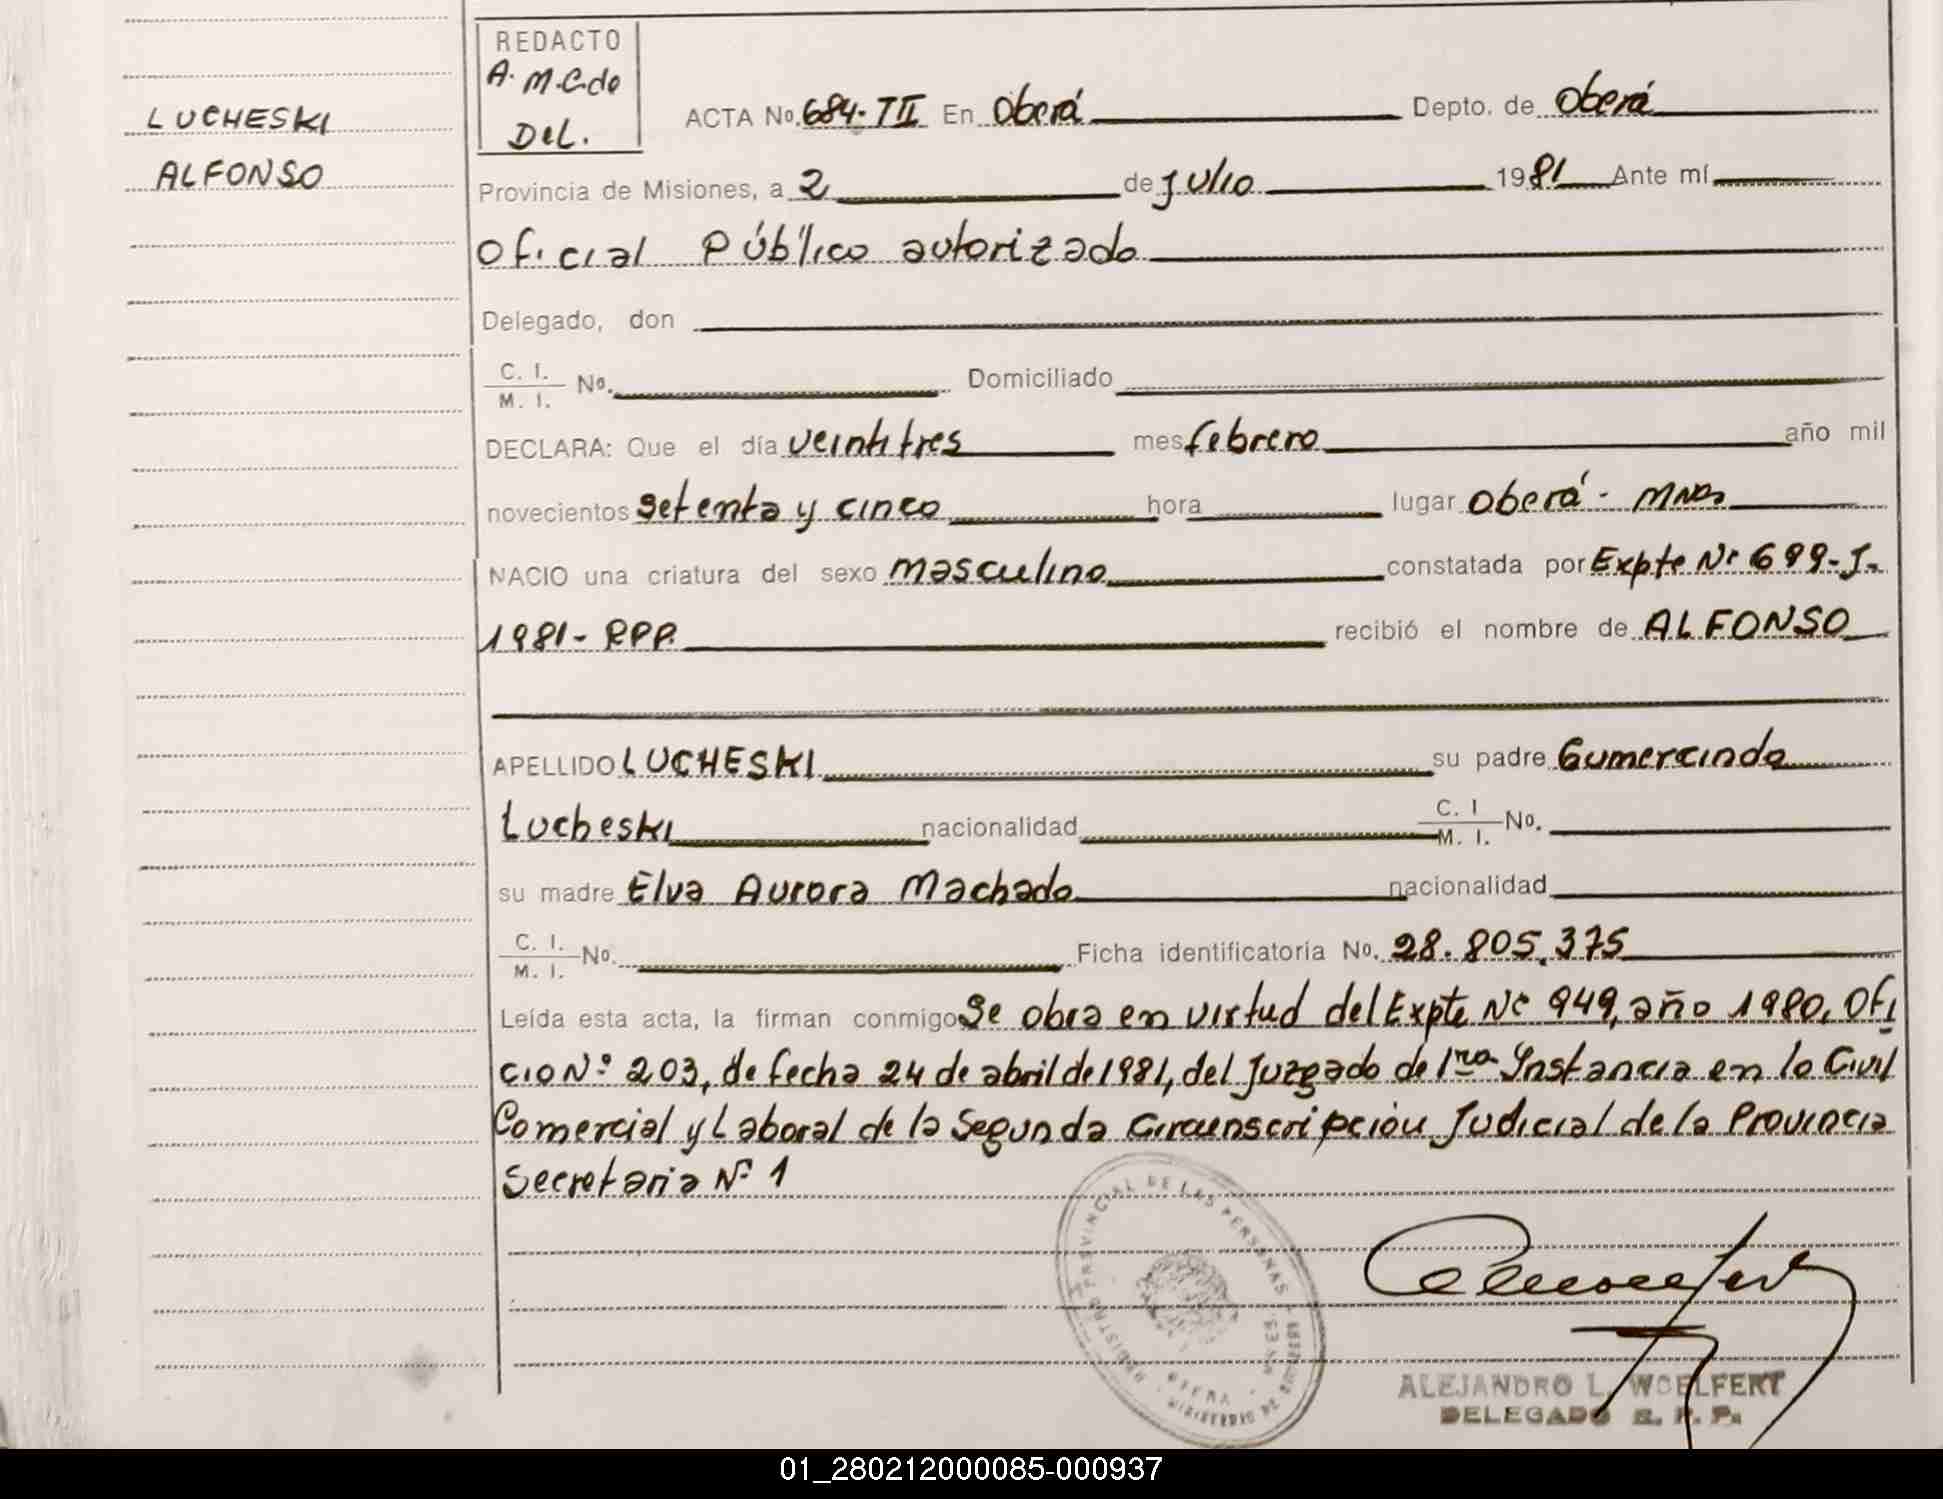 REDACTO
A. M.C.do
Del.
LUCHESKI
ALFONSO
ACTA No. 684-TII En Oberá Depto. de Oberá
Provincia de Misiones, a 2 de Julio 1981 Ante mí
Oficial Público autorizado
Delegado, don
C. I. / M. I. No. Domiciliado
DECLARA: Que el día veintitres mes febrero año mil
novecientos setenta y cinco hora lugar Oberá - Mnes
NACIO una criatura del sexo masculino constatada por Expte Nº 699-J-
1981- RPP. recibió el nombre de ALFONSO
APELLIDO LUCHESKI su padre Gumercindo
Lucheski nacionalidad C. I / M. I. No.
su madre Elva Aurora Machado nacionalidad
C. I. / M. I. No. Ficha identificatoria No. 28.805.375
Leída esta acta, la firman conmigo Se obra en virtud del Expte Nº 949, año 1980, Ofi
cio Nº 203, de fecha 24 de abril de 1981, del Juzgado de 1ra Instancia en lo Civil
Comercial y Laboral de la Segunda Circunscripción Judicial de la Provincia
Secretaria Nº 1
REGISTRO PROVINCIAL DE LAS PERSONAS
OBERA
MINISTERIO DE
ALEJANDRO L. WOELFERT
DELEGADO R. P. P.
01_280212000085-000937